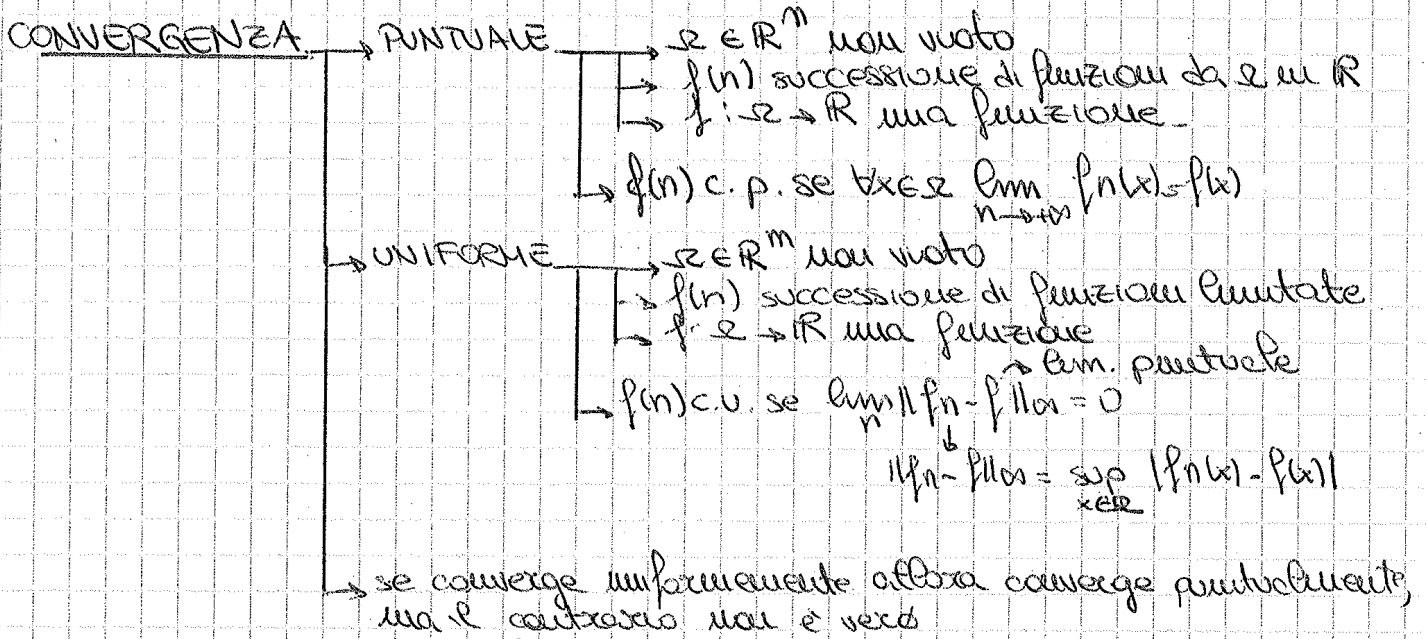 CONVERGENZA → PUNTUALE → Ω ∈ ℝ^m non vuoto
→ f(n) successione di funzioni da Ω in ℝ
→ f : Ω → ℝ una funzione
→ f(n) c. p. se ∀x∈Ω lim n→+∞ fn(x)=f(x)
→ UNIFORME → Ω ∈ ℝ^m non vuoto
→ f(n) successione di funzioni limitate
→ f: Ω → ℝ una funzione
→ lim. puntuale
→ f(n) c.u. se lim n ||fn - f||∞ = 0
↓
||fn - f||∞ = sup x∈Ω |fn(x) - f(x)|
→ se converge uniformemente allora converge puntualmente,
ma il contrario non è vero